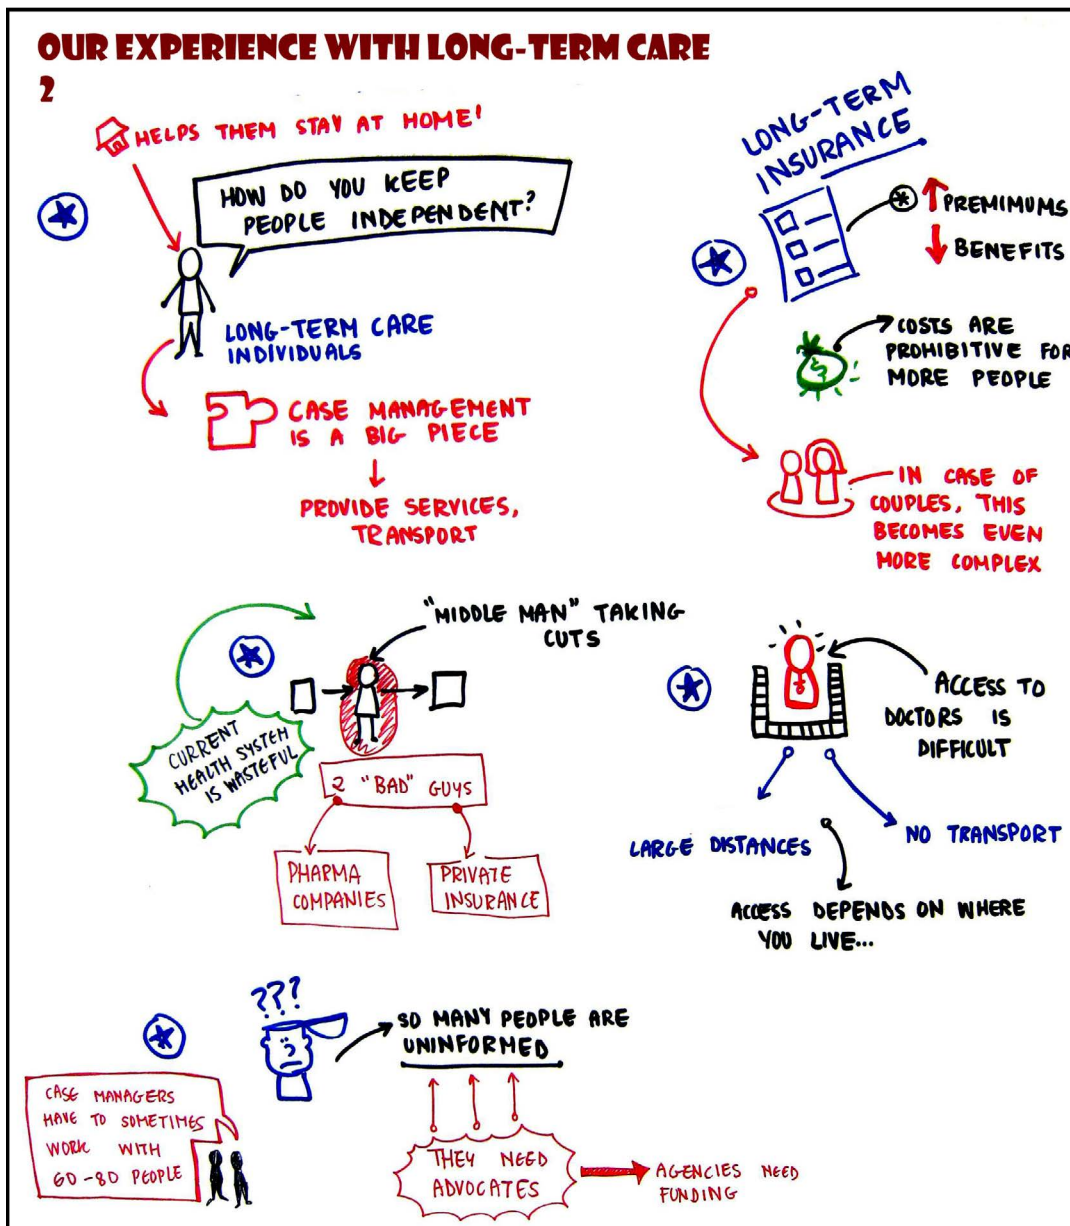 OUR EXPERIENCE WITH LONG-TERM CARE
2
HELPS THEM STAY AT HOME!
HOW DO YOU KEEP
PEOPLE INDEPENDENT?
LONG-TERM CARE
INDIVIDUALS
CASE MANAGEMENT
IS A BIG PIECE
PROVIDE SERVICES,
TRANSPORT
LONG-TERM
INSURANCE
PREMIMUMS
BENEFITS
$
COSTS ARE
PROHIBITIVE FOR
MORE PEOPLE
IN CASE OF
COUPLES, THIS
BECOMES EVEN
MORE COMPLEX
"MIDDLE MAN" TAKING
CUTS
CURRENT
HEALTH SYSTEM
IS WASTEFUL
2 "BAD" GUYS
PHARMA
COMPANIES
PRIVATE
INSURANCE
ACCESS TO
DOCTORS IS
DIFFICULT
LARGE DISTANCES
NO TRANSPORT
ACCESS DEPENDS ON WHERE
YOU LIVE...
???
SO MANY PEOPLE ARE
UNINFORMED
CASE MANAGERS
HAVE TO SOMETIMES
WORK WITH
60-80 PEOPLE
THEY NEED
ADVOCATES
AGENCIES NEED
FUNDING